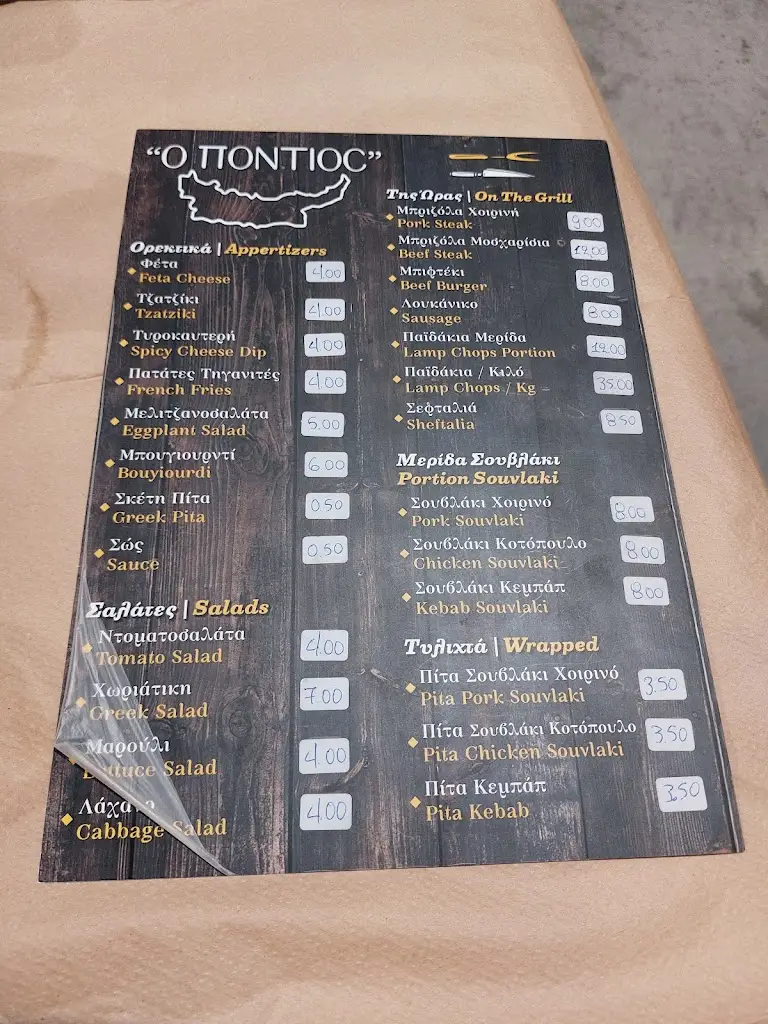 “Ο ΠΟΝΤΙΟC”
Ορεκτικά | Appertizers
Φέτα
Feta Cheese
4.00
Τζατζίκι
Tzatziki
4.00
Τυροκαυτερή
Spicy Cheese Dip
4.00
Πατάτες Τηγανιτές
French Fries
4.00
Μελιτζανοσαλάτα
Eggplant Salad
5.00
Μπουγιουρντί
Bouyiourdi
6.00
Σκέτη Πίτα
Greek Pita
0.50
Σώς
Sauce
0.50
Σαλάτες | Salads
Ντοματοσαλάτα
Tomato Salad
4.00
Χωριάτικη
Greek Salad
7.00
Μαρούλι
Lettuce Salad
4.00
Λάχανο
Cabbage Salad
4.00
Της Ώρας | On The Grill
Μπριζόλα Χοιρινή
Pork Steak
9.00
Μπριζόλα Μοσχαρίσια
Beef Steak
12.00
Μπιφτέκι
Beef Burger
8.00
Λουκάνικο
Sausage
8.00
Παϊδάκια Μερίδα
Lamp Chops Portion
12.00
Παϊδάκια / Κιλό
Lamp Chops / Kg
35.00
Σεφταλιά
Sheftalia
8.50
Μερίδα Σουβλάκι
Portion Souvlaki
Σουβλάκι Χοιρινό
Pork Souvlaki
8.00
Σουβλάκι Κοτόπουλο
Chicken Souvlaki
8.00
Σουβλάκι Κεμπάπ
Kebab Souvlaki
8.00
Τυλιχτά | Wrapped
Πίτα Σουβλάκι Χοιρινό
Pita Pork Souvlaki
3.50
Πίτα Σουβλάκι Κοτόπουλο
Pita Chicken Souvlaki
3.50
Πίτα Κεμπάπ
Pita Kebab
3.50